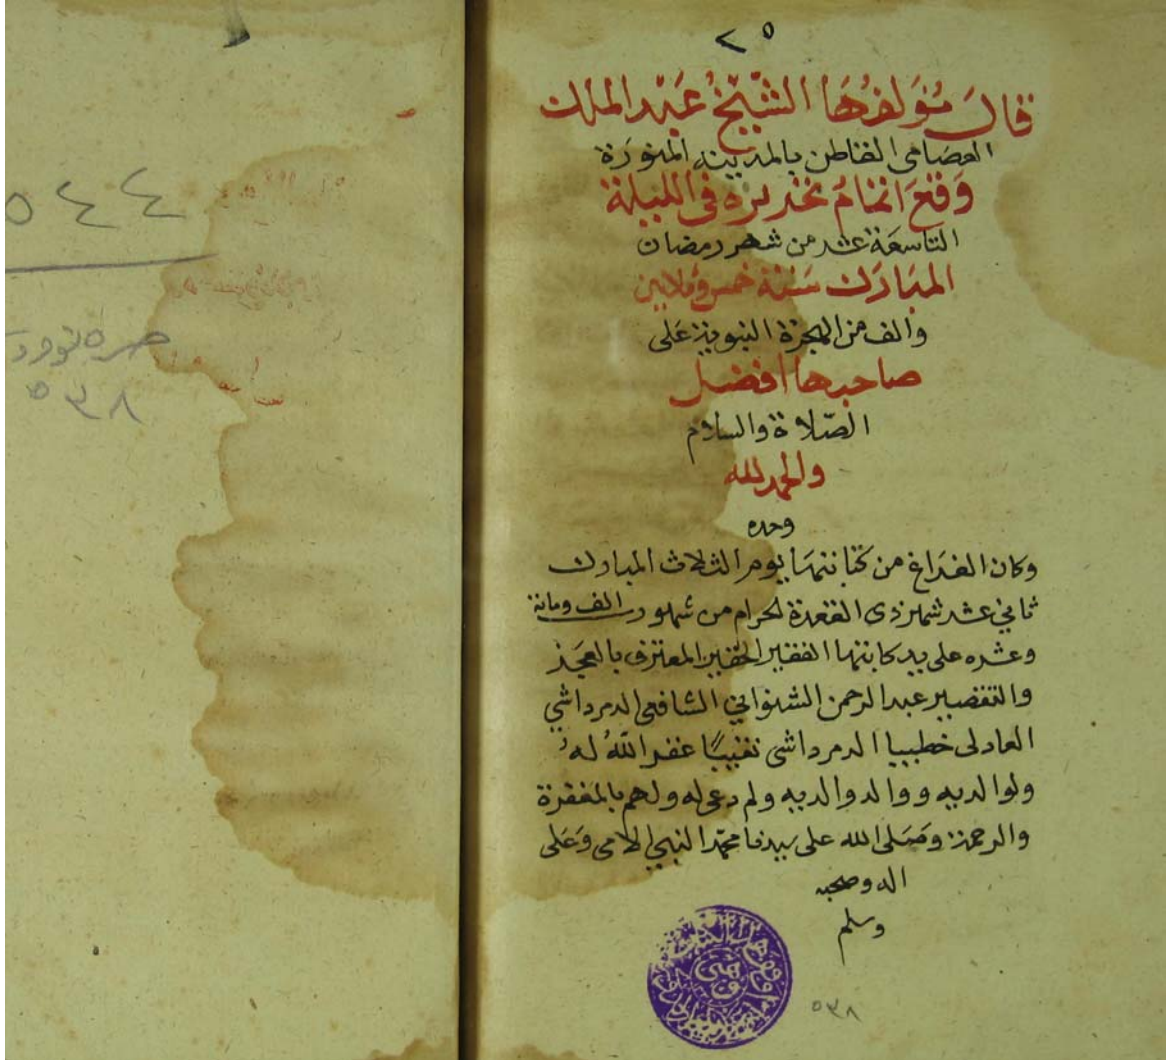 ٢٥
قال مؤلفها الشيخ عبد الملك
العصامى القاطن بالمدينه المنورة
وقع اتمام تحريره فى الليلة
التاسعة عشر من شهر رمضان
المبارك سنة خمس وثلاثين
والف من الهجرة النبوية على
صاحبها افضل
الصلاة والسلام
والحمد لله
وحده
وكان الفراغ من كتابتها يوم الثلاث المبارك
ثاني عشر شهر ذى القعدة الحرام من شهور الف ومائة
وعشره على يد كاتبها الفقير الحقير المعترف بالعجز
والتقصير عبد الرحمن الشنواني الشافعى الدمرداشي
العادلى خطيبا الدمرداشى نقيبًا غفر الله له
ولوالديه ووالد والديه ولمن دعى له ولهم بالمغفرة
والرحمة وصلى الله على سيدنا محمد النبي الامى وعلى
اله وصحبه
وسلم
٥٣٨
٥٤٤
٥٣٨